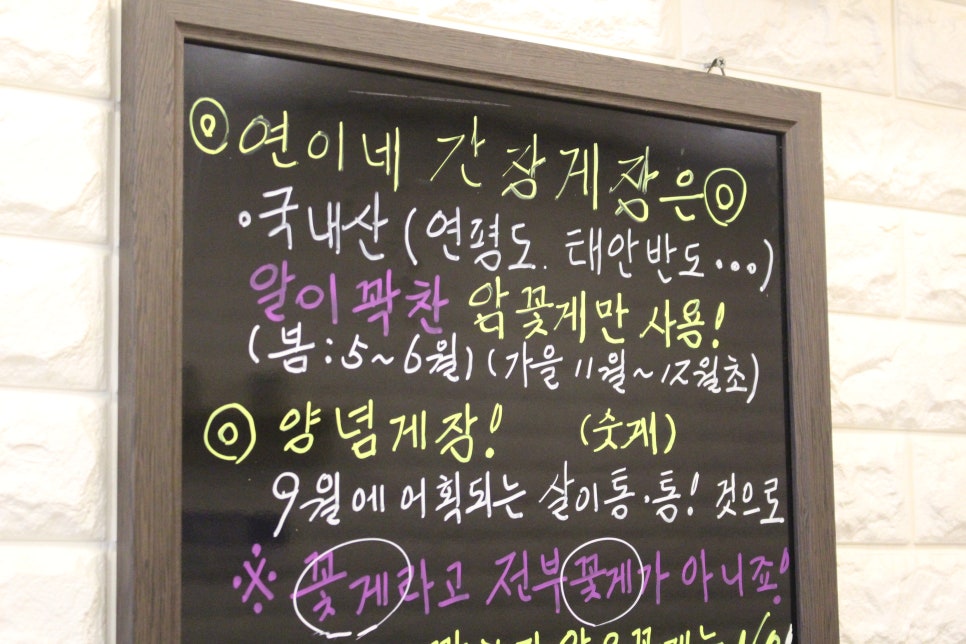 ◎연이네 간장게장은◎
•국내산 (연평도. 태안반도...)
알이 꽉찬 암꽃게만 사용!
(봄:5~6월) (가을 11월~12월초)
◎ 양념게장! (숫게)
9월에 어획되는 살이통·통! 것으로
※ 꽃게라고 전부꽃게가 아니죠!